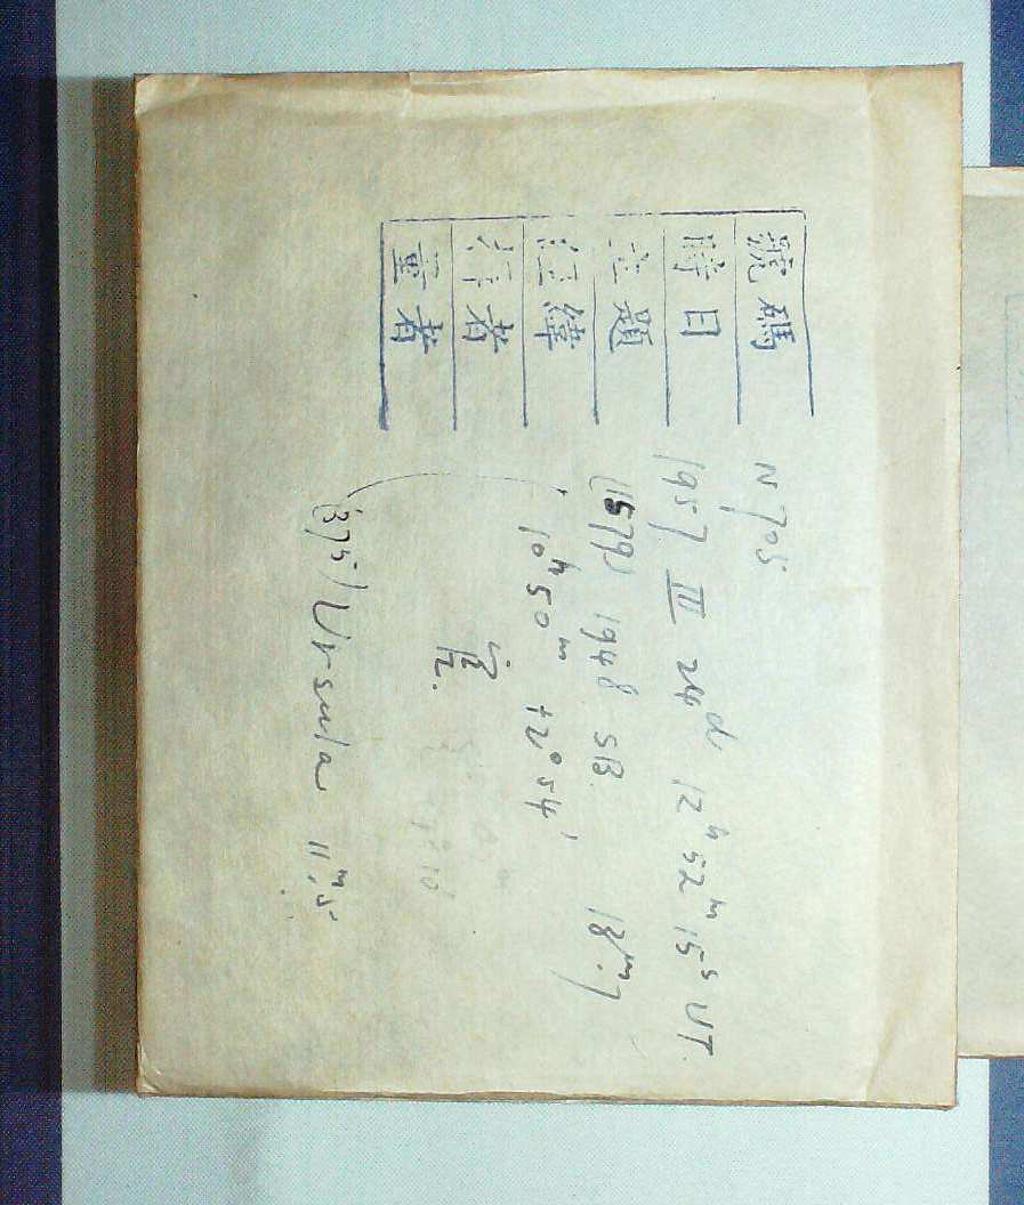 號碼 N 705
時日 1957 III 24ᵈ 12ʰ 52ᵐ 15ˢ UT.
題 (1579) 1948 SB. 18ᵐ.7
經緯 10ʰ 50ᵐ +2° 54'
者
量者
(375) Ursula 11ᵐ.5